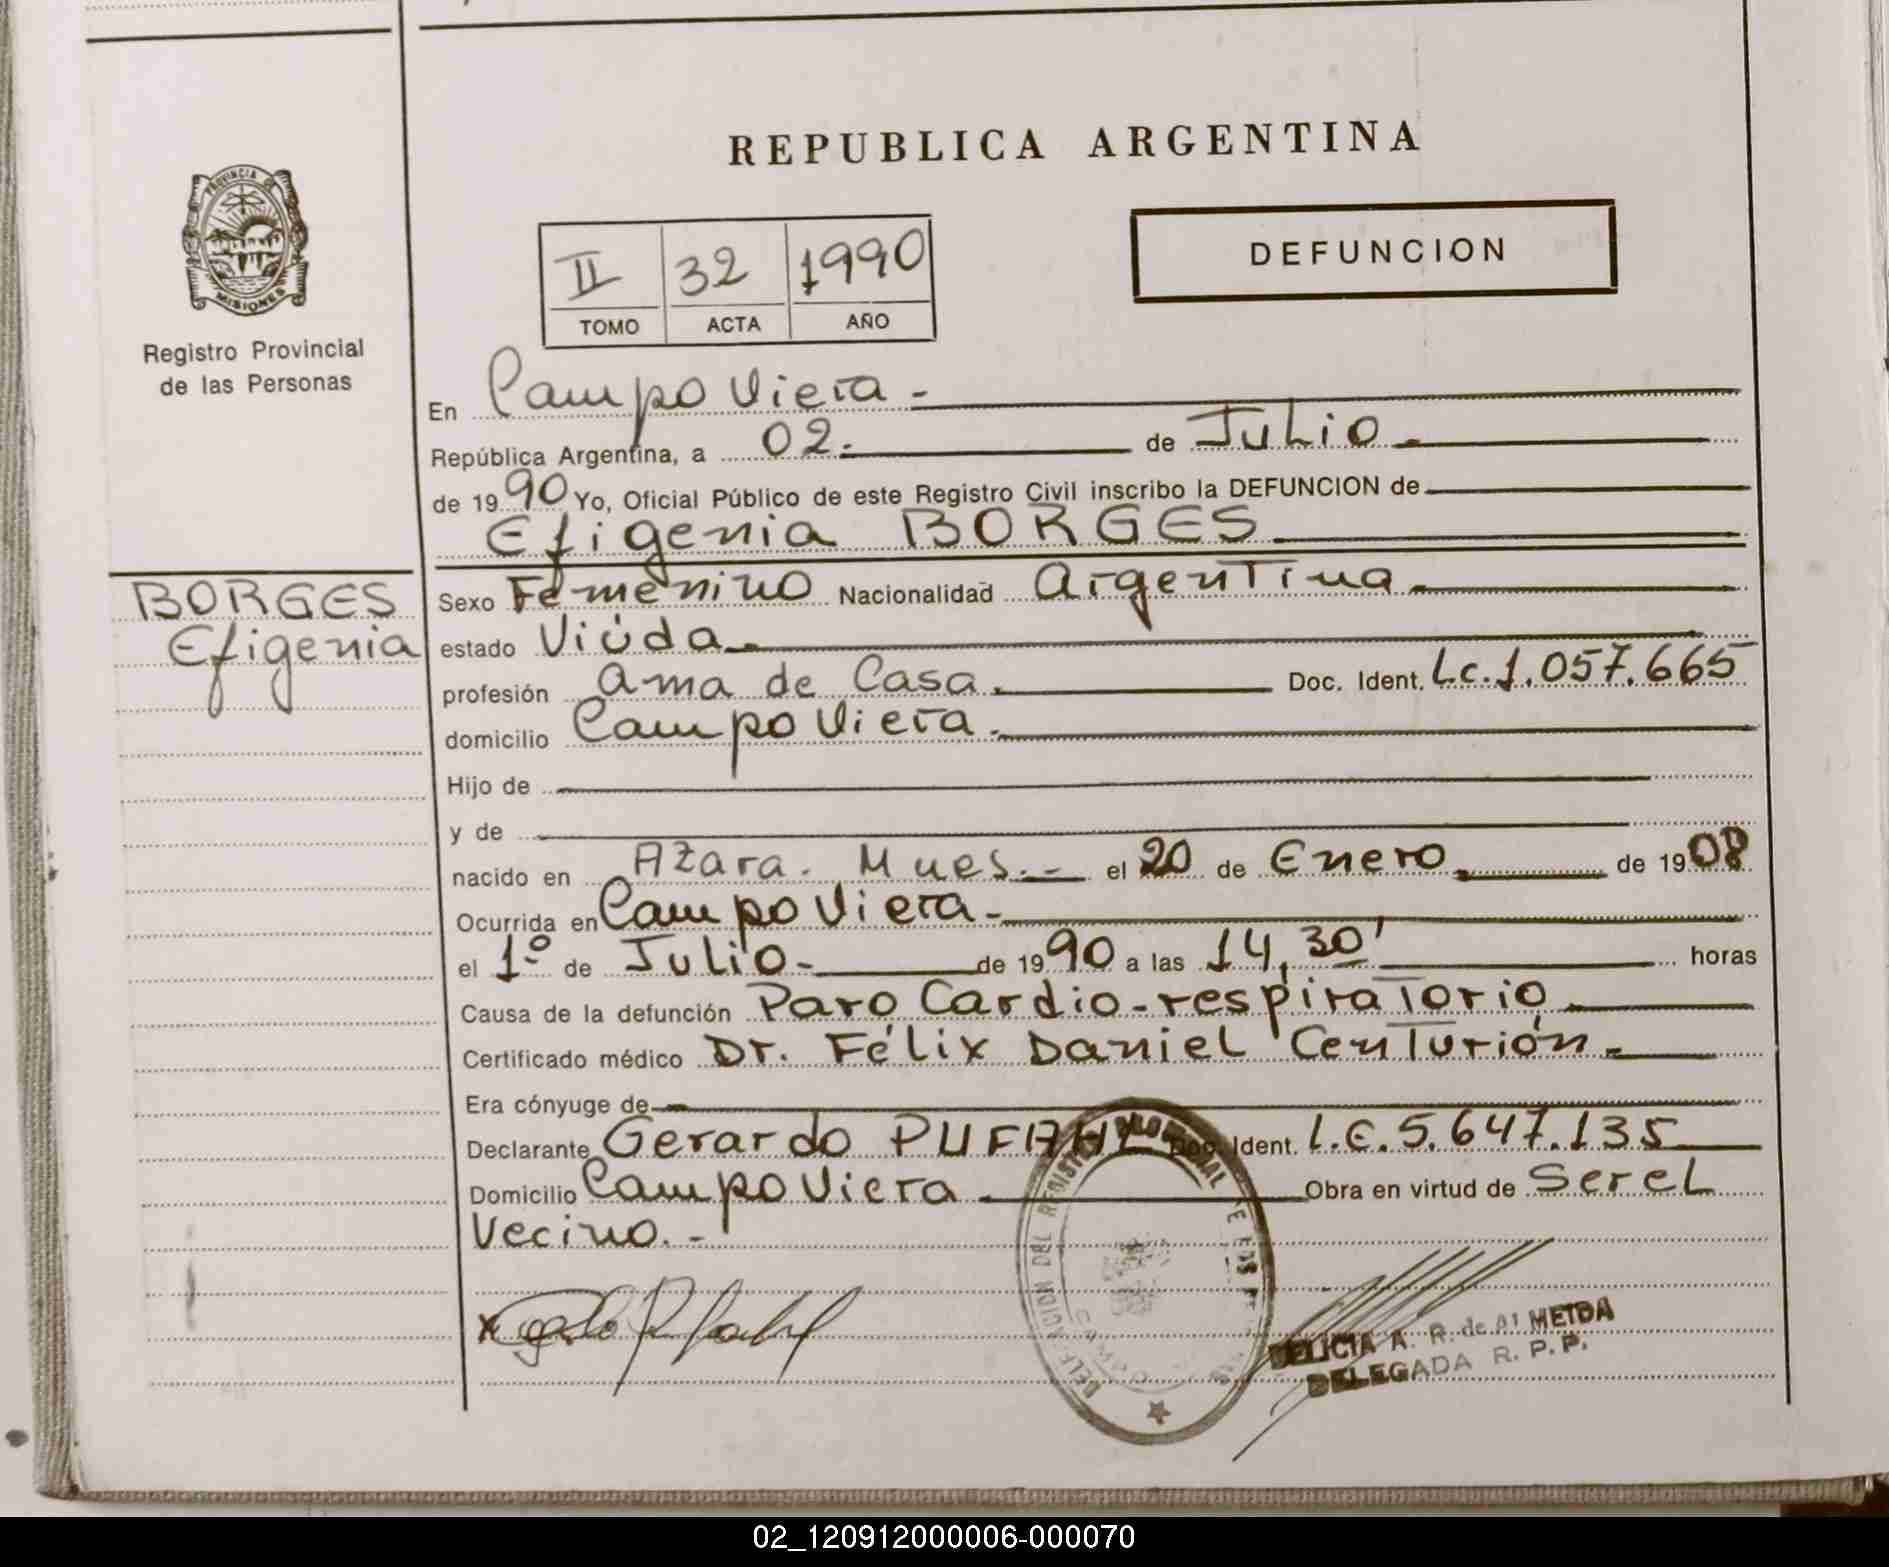 REPUBLICA ARGENTINA
PROVINCIA DE
MISIONES
Registro Provincial
de las Personas
II 32 1990
TOMO ACTA AÑO
DEFUNCION
En Campo Viera.-
República Argentina, a 02.- de Julio.-
de 1990 Yo, Oficial Público de este Registro Civil inscribo la DEFUNCION de
Efigenia BORGES
BORGES
Efigenia
Sexo Femenino Nacionalidad Argentina
estado Viuda.
profesión Ama de Casa. Doc. Ident. L.c.1.057.665
domicilio Campo Viera.
Hijo de
y de
nacido en Azara. Mnes.- el 20 de Enero. de 1908
Ocurrida en Campo Viera.-
el 1º de Julio.- de 1990 a las 14,30' horas
Causa de la defunción Paro Cardio-respiratorio
Certificado médico Dr. Félix Daniel Centurión.-
Era cónyuge de
Declarante Gerardo PUFAHL Doc. Ident. L.E.5.647.135
Domicilio Campo Viera Obra en virtud de Ser el
Vecino.-
DELICIA A. R. de ALMEIDA
DELEGADA R. P. P.
02_120912000006-000070